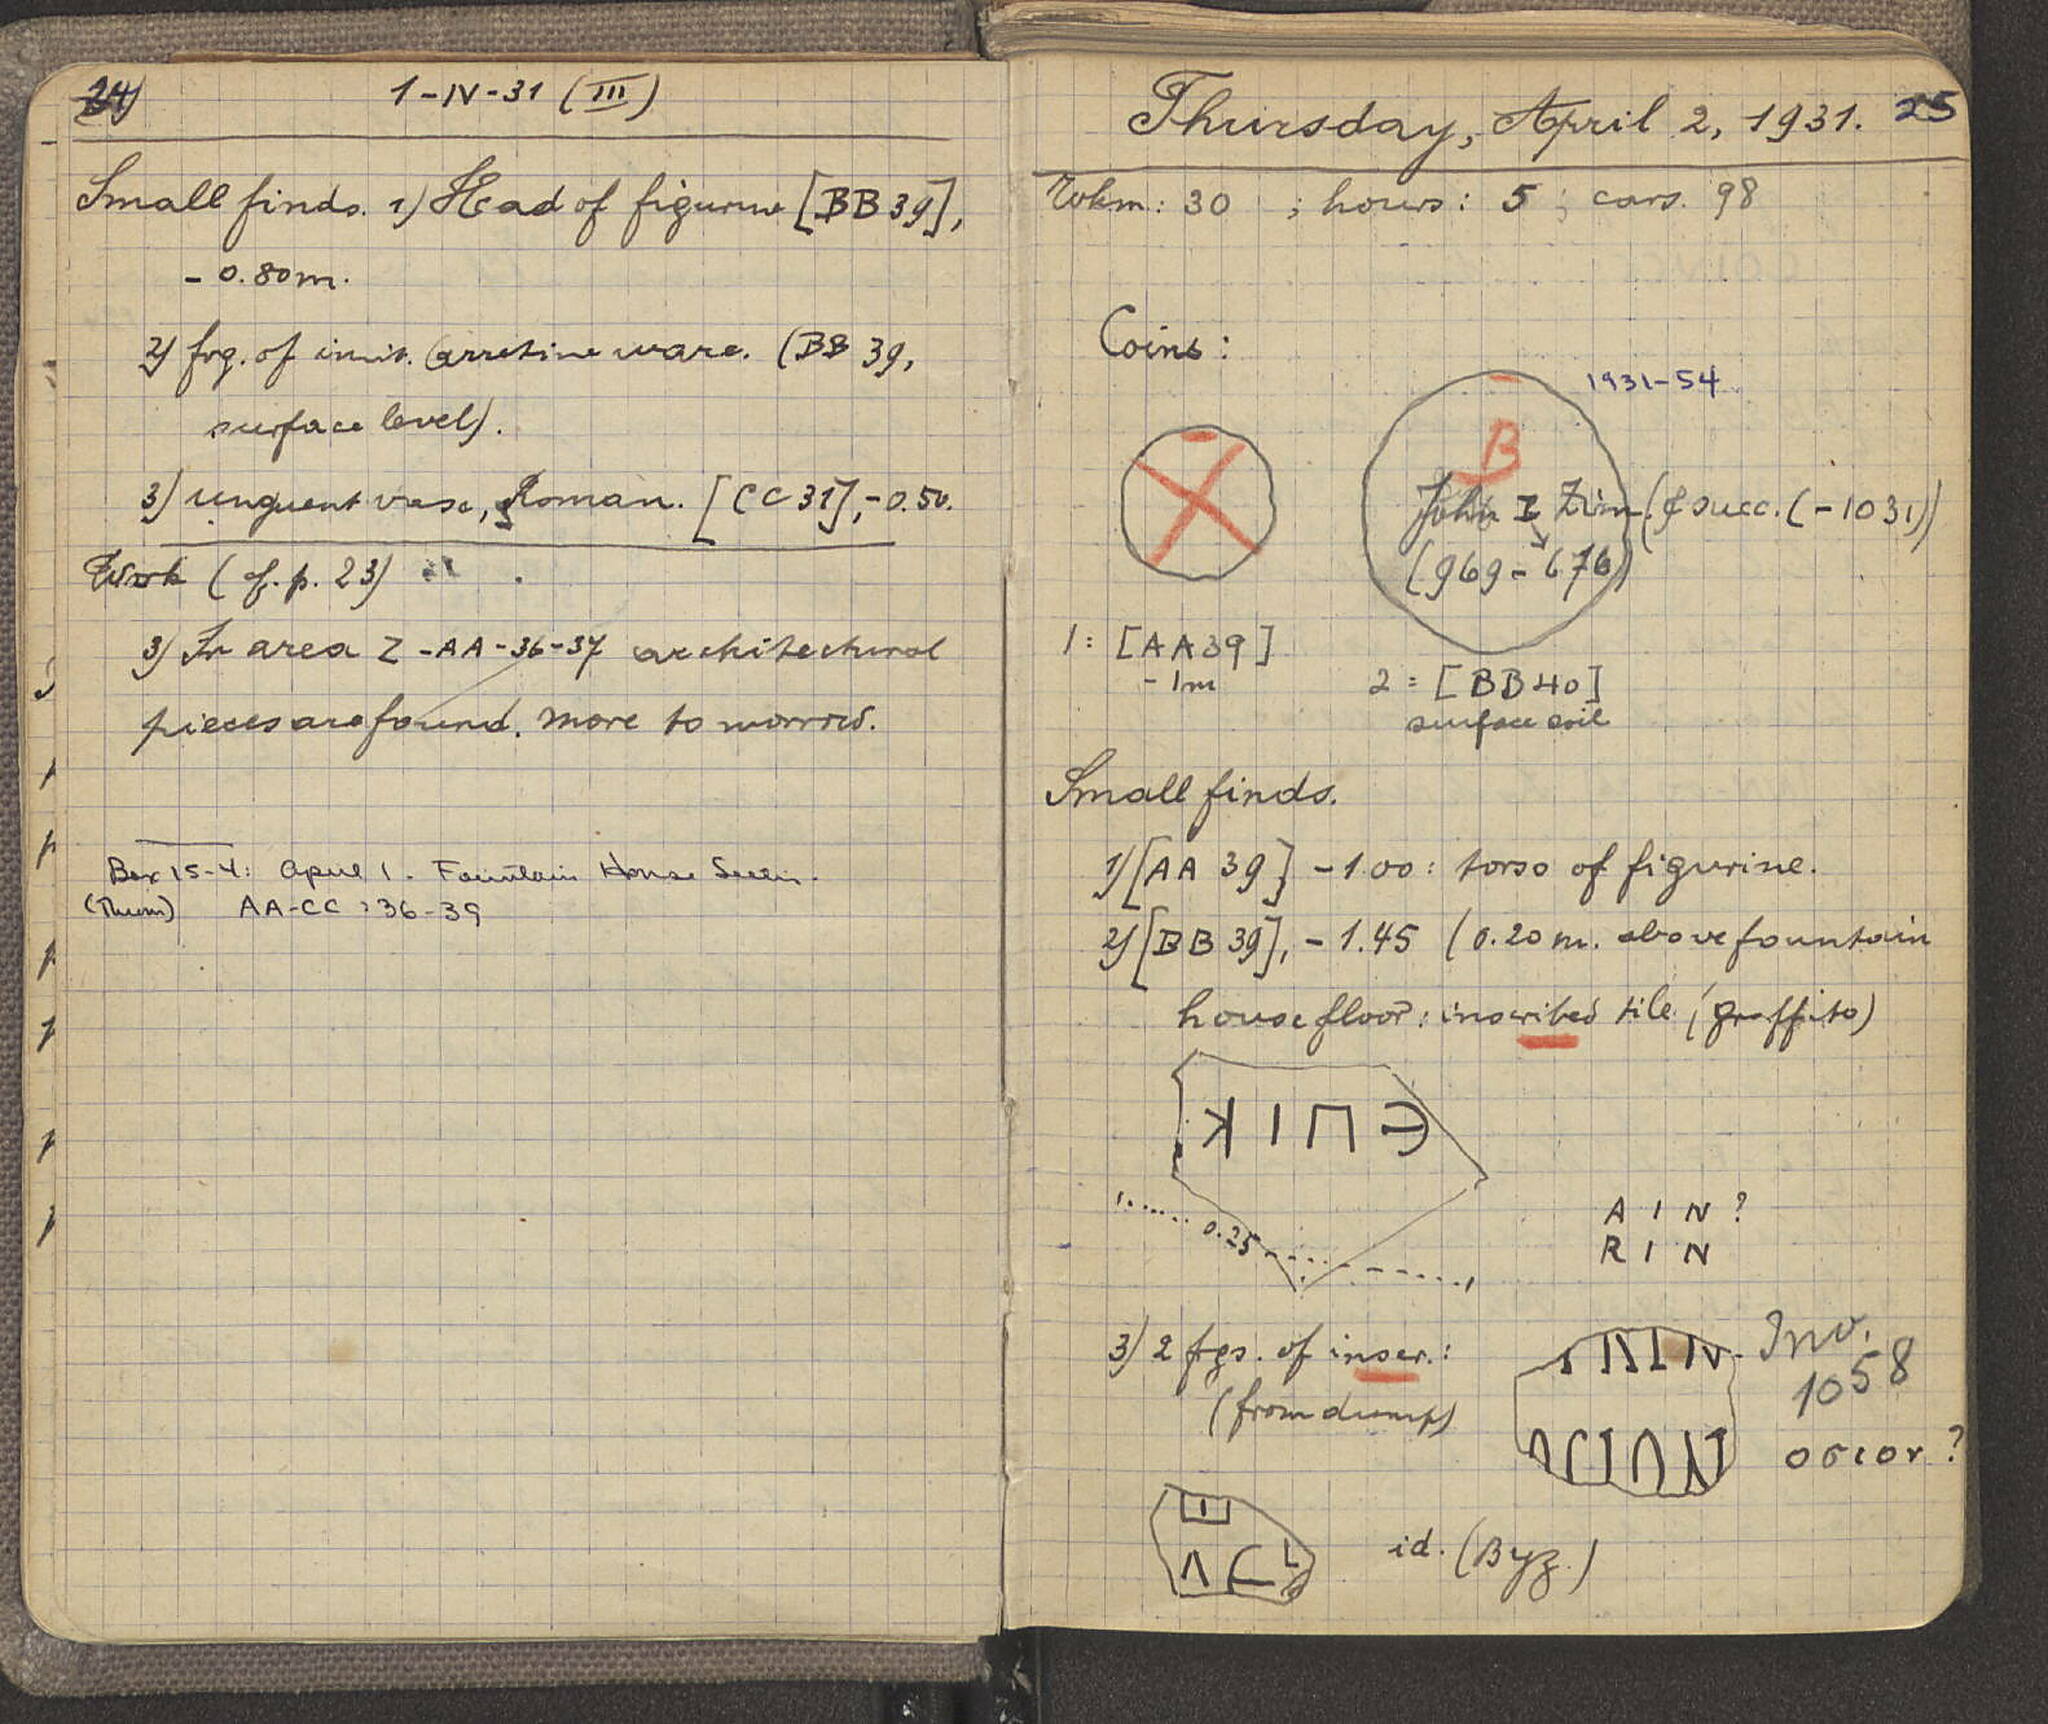 24)
1-IV-31 (III)
Small finds. 1) Head of figurine [BB 39],
- 0.80 m.
2) frg. of imit. arretine ware. (BB 39,
surface level).
3) unguent vase, Roman. [CC 31], -0.50.
Work (cf. p. 23)
3) In area Z-AA-36-37 architectural
pieces are found. More to morrow.
Box 15-4: April 1 - Fountain House
AA-CC : 36-39
Thursday, April 2, 1931. 25
Wkm.: 30 ; hours: 5 ; cars. 98
Coins:
1931-54
B
John I Zim. (& succ. (-1031))
(969-976)
1: [AA 39]
- 1m
2 = [BB 40]
surface soil
Small finds.
1) [AA 39] -1.00: torso of figurine.
2) [BB 39], -1.45 (0.20 m. above fountain
house floor: inscribed tile (graffito)
0.25
A I N ?
R I N
3) 2 frgs. of inscr.:
(from dump)
Inv.
1058
οσιον ?
id. (Byz.)